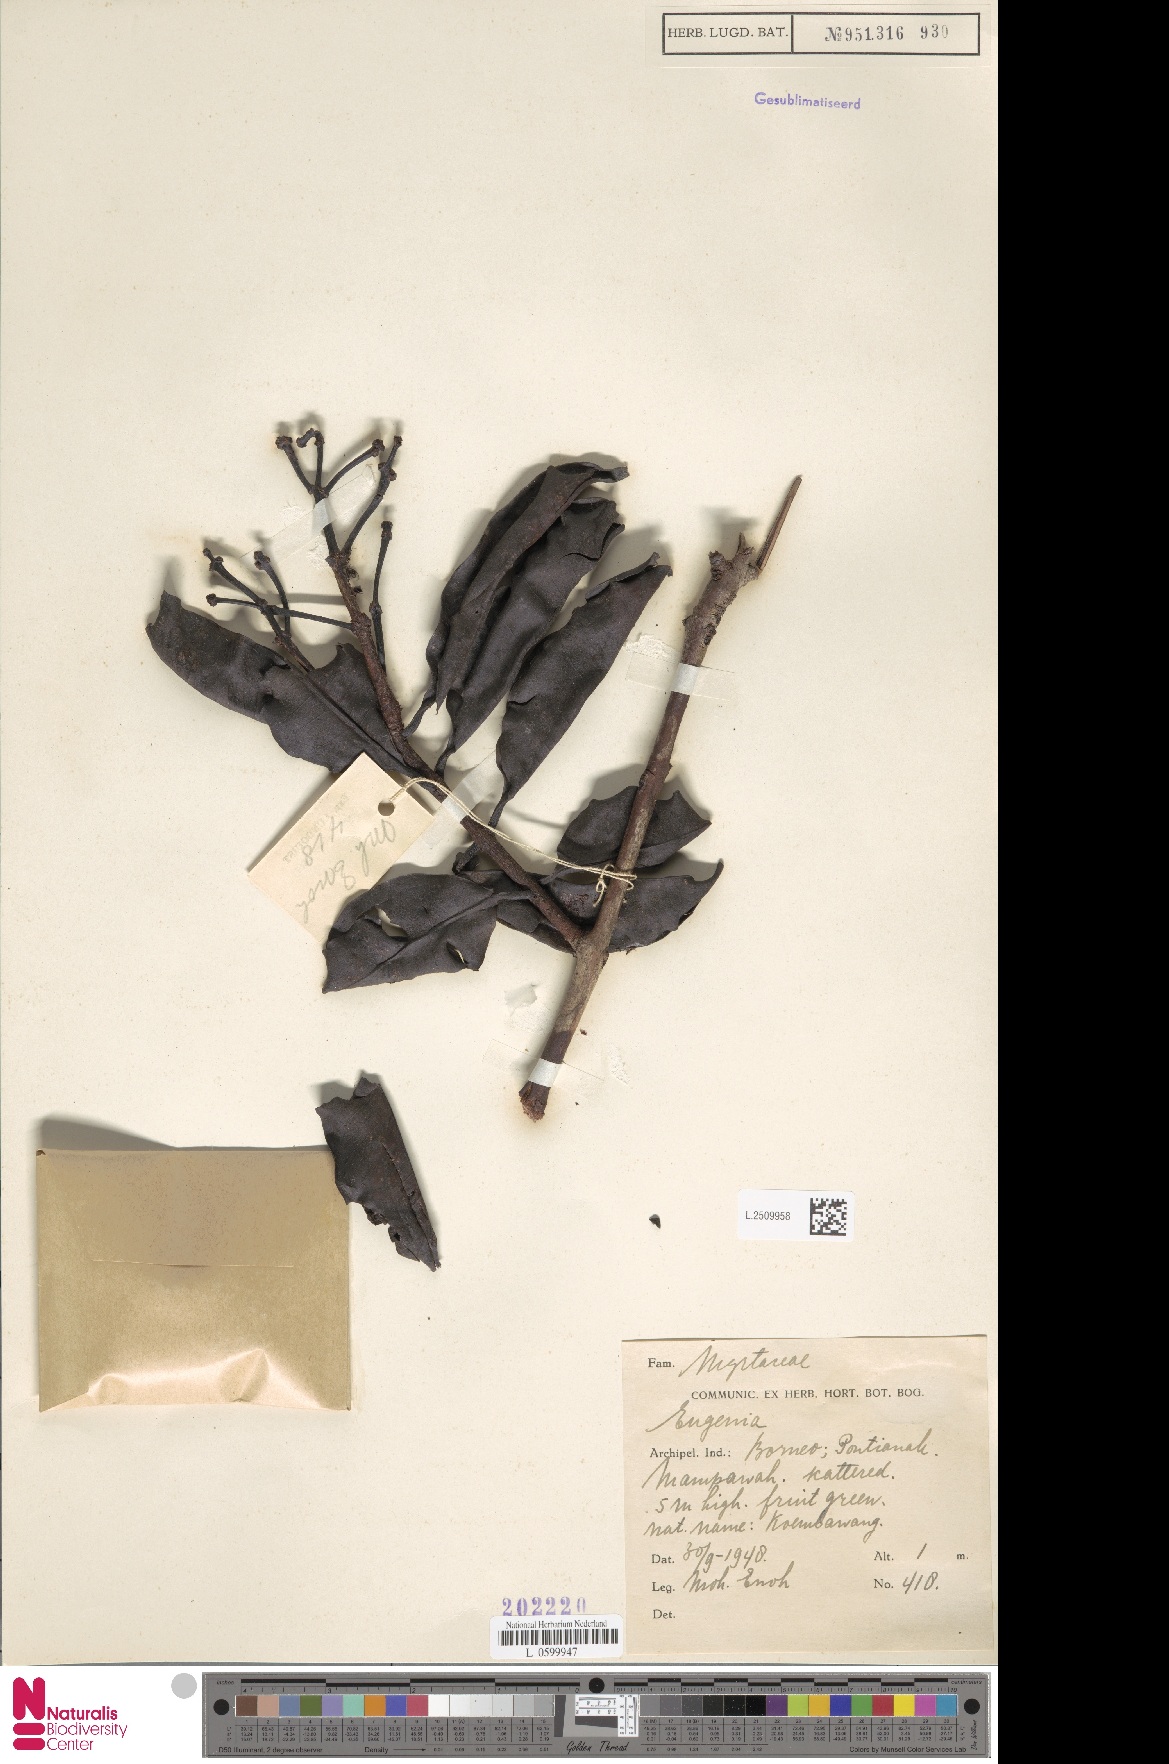 HERB. LUGD. BAT. № 951.316 930
Gesublimatiseerd
Moh. Enoh
418
L.2509958
Fam. Myrtaceae
COMMUNIC. EX HERB. HORT. BOT. BOG.
Eugenia
Archipel. Ind.: Borneo; Pontianak.
Mampawah. scattered.
5 m high. fruit green.
nat. name: Koembawang.
Dat. 30/9-1948. Alt. 1 m.
Leg. Moh. Enoh No. 418.
Det.
202220
Nationaal Herbarium Nederland
L 0599947
Naturalis
Biodiversity
Center
D50 Illuminant, 2 degree observer
Density
Golden Thread
Colors by Munsell Color Services Lab